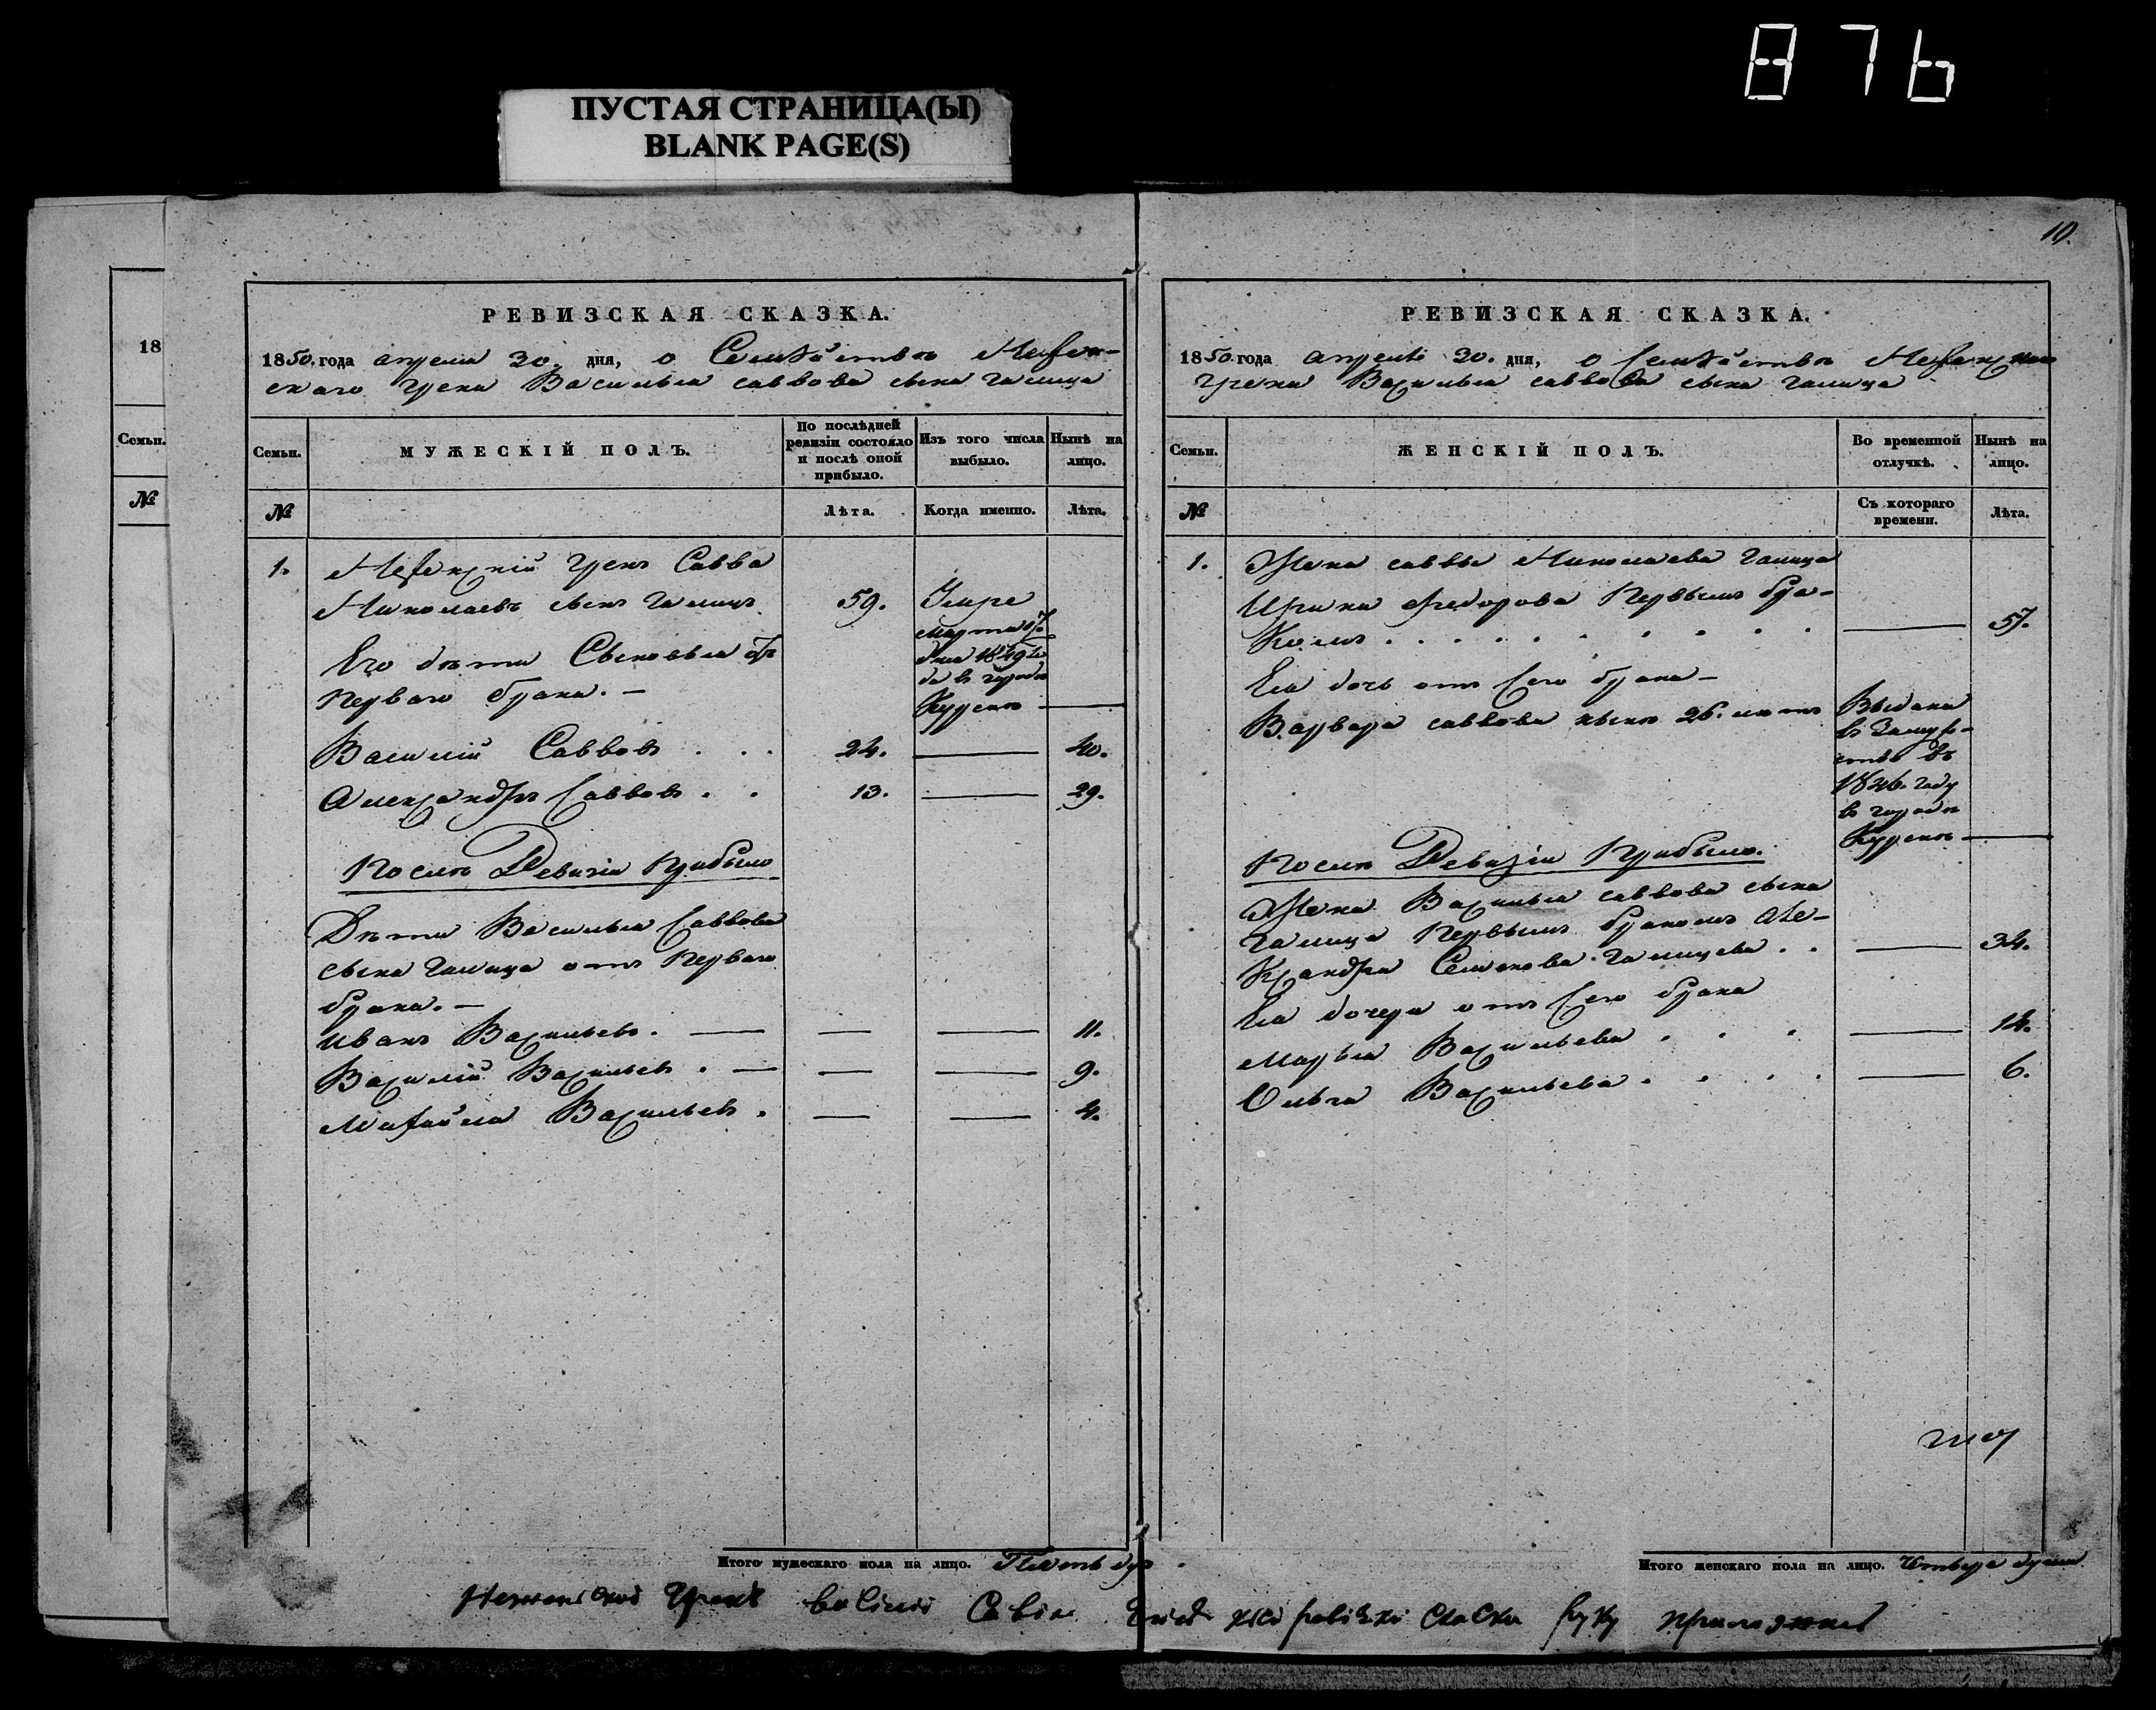 876
ПУСТАЯ СТРАНИЦА(Ы)
BLANK PAGE(S)
18
Семьи.
№
РЕВИЗСКАЯ СКАЗКА.
1850. года апреля 30. дня, о Семѣйствѣ Нежин-
скаго грека Василья саввова сына галица
Семьи.
МУЖЕСКІЙ ПОЛЪ.
По послѣдней ревизіи состояло и послѣ оной прибыло.
Изъ того числа выбыло.
Нынѣ на лицо.
№
Лѣта.
Когда именно.
Лѣта.
1. Нежинскій грекъ Савва
Николаевъ сынъ галицъ. 59. Умре
марта 17
дня 1849 го
да в городѣ
Курскѣ
Его дѣти Сыновья отъ
перваго брака.
Василій Саввовъ . . . 24. 40.
Александръ Саввовъ . . 13. 29.
Послѣ Ревизіи прибыло
Дѣти Василья Саввова
сына галица отъ перваго
брака.
иванъ Васильевъ. 11.
Василій Васильевъ. 9.
Михайла Васильевъ. 4.
Итого мужескаго пола на лицо. Пять душ
10.
РЕВИЗСКАЯ СКАЗКА.
1850 года апреля 30. дня, о семѣйствѣ Нежинскаго
грека Василья саввова сына галица
Семьи.
ЖЕНСКІЙ ПОЛЪ.
Во временной отлучкѣ.
Нынѣ на лицо.
№
Съ котораго времени.
Лѣта.
1. Жена саввы Николаева галица
Ирина Федорова первымъ бра-
комъ . . . . . . . . . 57.
Ея дочь отъ сего брака
Варвара саввова 26. лѣтъ Выдана
в Замуж-
ство въ
1846. году
в городѣ
Курскѣ
Послѣ Ревизіи прибыло.
Жена Василья саввова сына
галица первымъ бракомъ Але-
ксандра Семенова галицева . . 34.
Ея дочери отъ сего брака
Марья Васильева . . . 14.
Ольга Васильева . . . . 6.
Итого женскаго пола на лицо. Четыре души
Неженской Грекъ Савин руку приложил